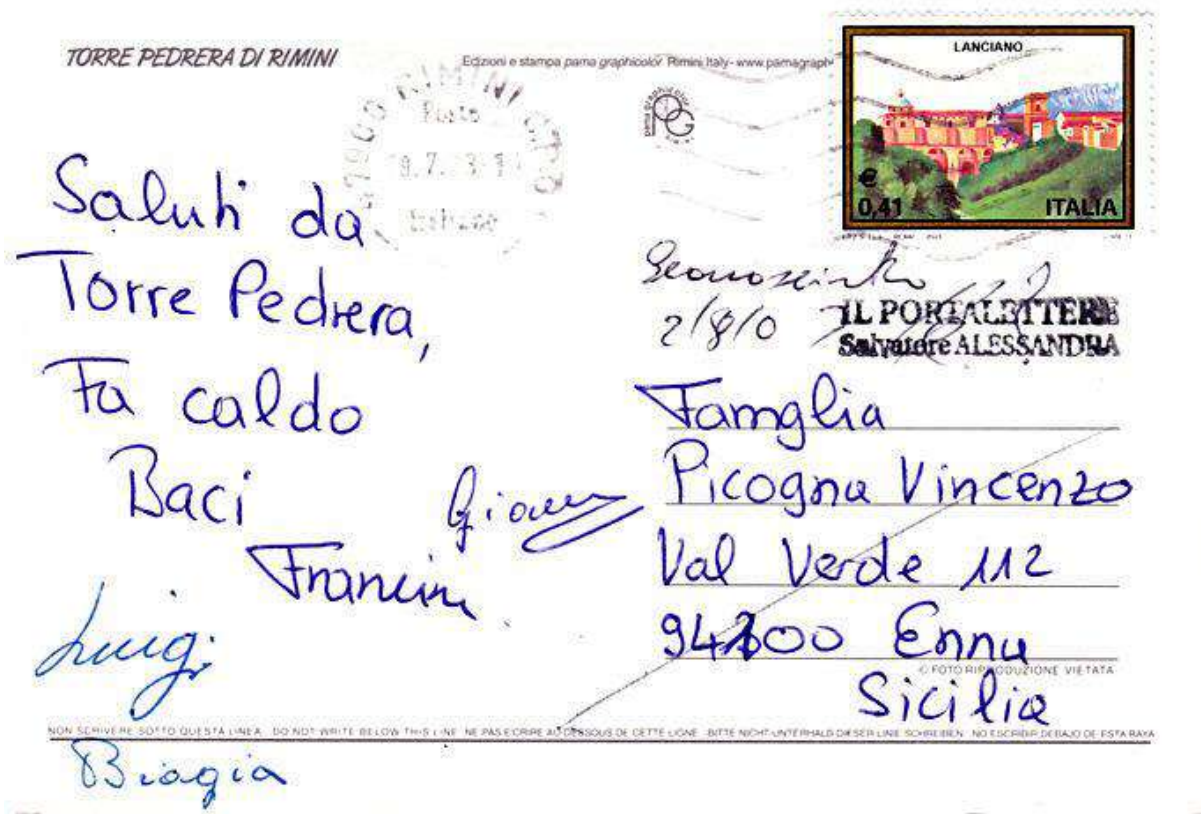 TORRE PEDRERA DI RIMINI
Edizioni e stampa pama graphicolor Rimini Italy- www.pamagraph
pama graphicolor
LANCIANO
€
0,41
ITALIA
47900 RIMINI
Posta
Saluti da
Torre Pedrera,
Fa caldo
Baci
Francine
Luigi
Biagia
2/8/0
IL PORTALETTERE
Salvatore ALESSANDRA
Famglia
Picogna Vincenzo
Val Verde 112
94100 Enna
Sicilia
© FOTO RIPRODUZIONE VIETATA
NON SCRIVERE SOTTO QUESTA LINEA DO NOT WRITE BELOW THIS LINE NE PAS ECRIRE AU DESSOUS DE CETTE LIGNE BITTE NICHT UNTERHALB DIESER LINIE SCHREIBEN NO ESCRIBIR DEBAJO DE ESTA RAYA